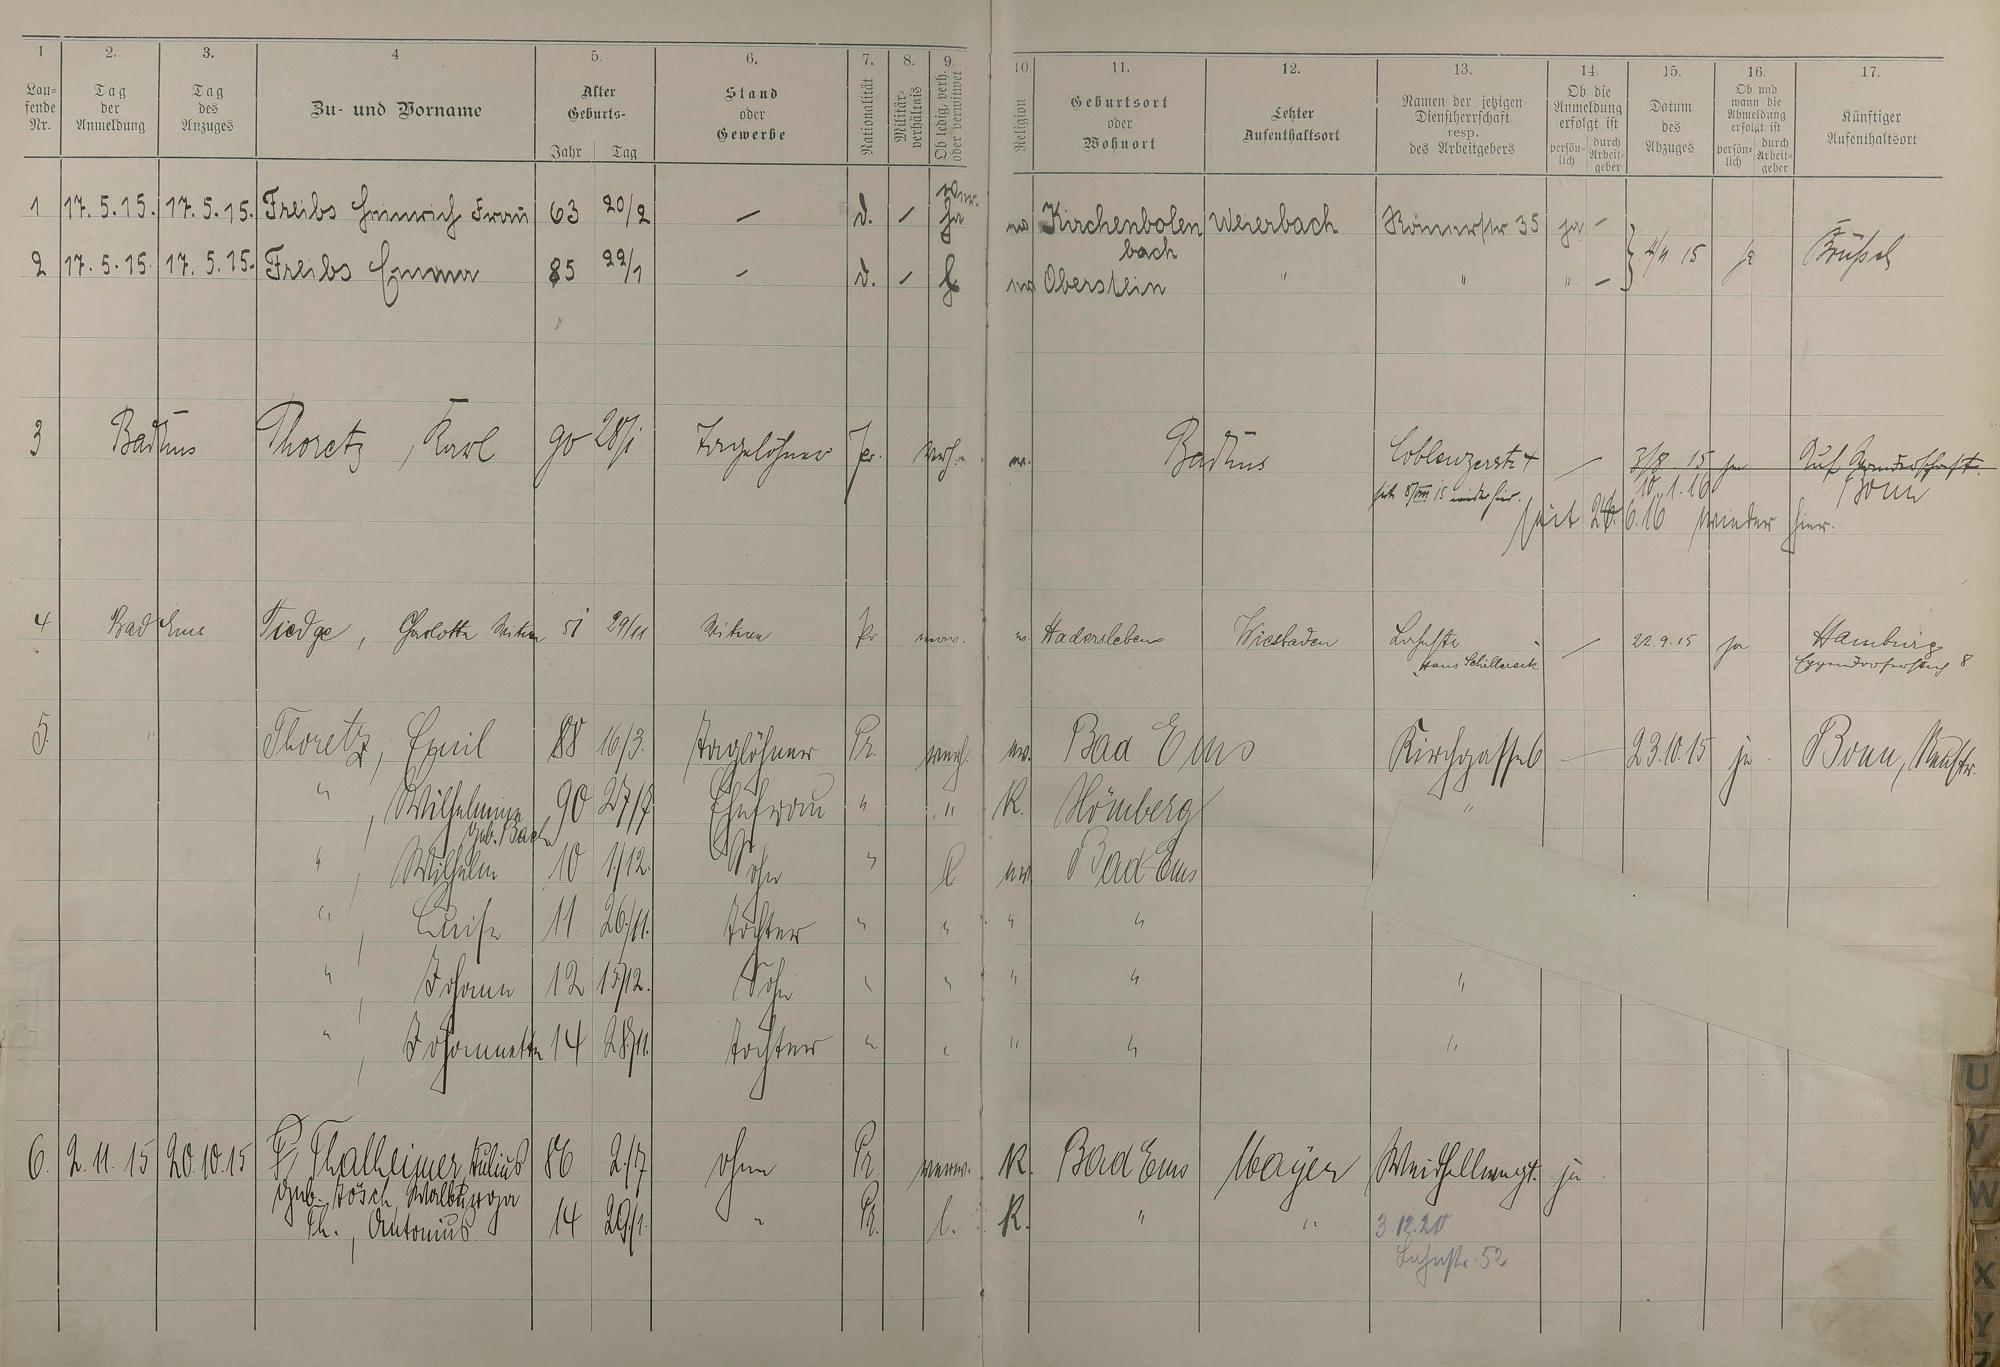 1 2. 3. 4 5. 6. 7. 8. 9. 10. 11. 12. 13. 14. 15. 16. 17.
Laufende Nr. Tag der Anmeldung Tag des Anzuges Zu- und Vorname Alter Geburts- Jahr Tag Stand oder Gewerbe Nationalität Militärverhältnis Ob ledig, verh. oder verwitwet Religion Geburtsort oder Wohnort Letzter Aufenthaltsort Namen der jetzigen Dienstherrschaft resp. des Arbeitgebers Ob die Anmeldung erfolgt ist persönlich durch Arbeitgeber Datum des Abzuges Ob und wann die Abmeldung erfolgt ist persönlich durch Arbeitgeber Künftiger Aufenthaltsort
1 17.5.15. 17.5.15. Freibs Heinrich Frau 63 20/2 – d. – ev Kirchenbolenbach Weierbach Römerstr 35 ja – 4/11 15 ja Brüssel
2 17.5.15. 17.5.15. Freibs Emma 85 22/1 – d. – l ev Oberstein " " " –
3 Bad Ems Thoretz, Karl 90 28/1 Taglöhner Pr. verh. ev. Bad Ems Coblenzerstr 4 – 3/8.15 ja Auf Wanderschaft.
seit 8/VIII 15 wieder hier. 10.1.16 Bonn
seit 26.6.16 wieder hier.
4 Bad Ems Tiedge, Charlotte Witwe 51 29/11 Witwe Pr. verw. ev. Hadersleben Wiesbaden Lahnstr – 22.9.15 ja Hamburg
Haus Schillereck 8
5. " Thoretz, Emil 88 16/3. Taglöhner Pr. verh. ev. Bad Ems Kirchgasse 6 – 23.10.15 ja Bonn,
" , Wilhelmine 90 27/7 Ehefrau " " K. Hömberg "
geb. Bach
" , Wilhelm 10 1/12. Sohn " l ev Bad Ems
" , Luise 11 26/11. Tochter " " " "
" , Johann 12 15/12. Sohn " " " " "
" , Johannette 14 28/11. Tochter " " " " "
6. 2.11.15 20.10.15 Fr. Thalheimer, Julius 86 2./7 ohne Pr. verw. K. Bad Ems Mayen ja
geb. Rösch, Walburga
Th., Antonius 14 29/1. " Pr. l. K. " " 3.12.20
Lahnstr. 52
U
V
W
X
Y
Z